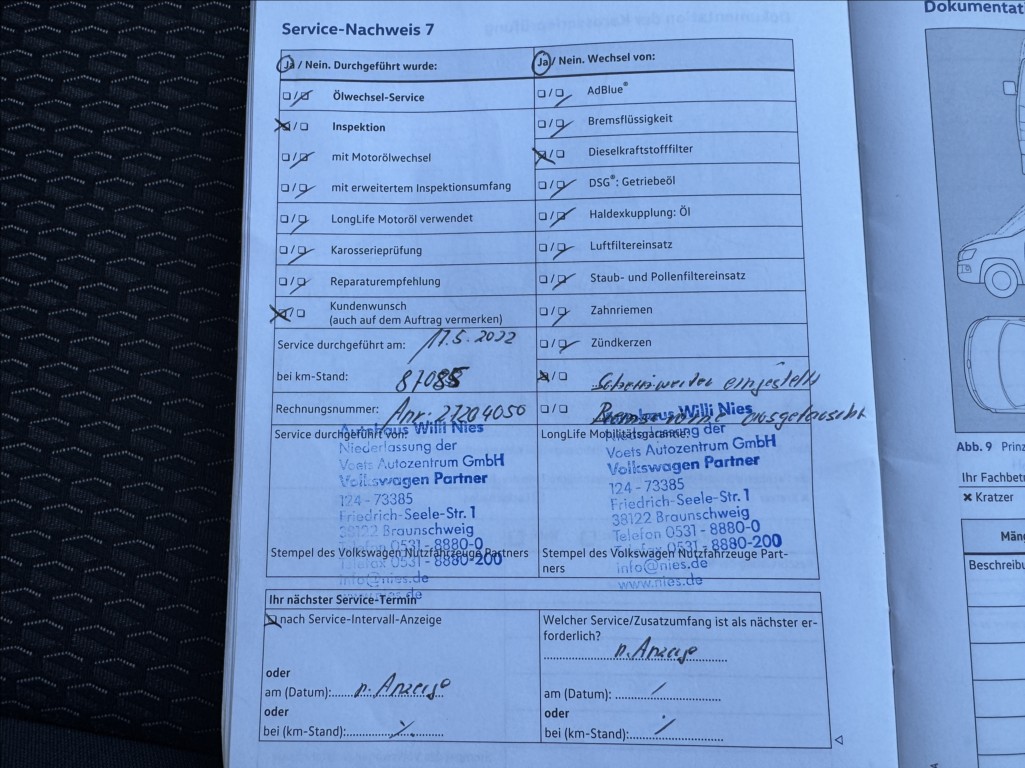 Service-Nachweis 7
Ja / Nein. Durchgeführt wurde:
Ölwechsel-Service
Inspektion
mit Motorölwechsel
mit erweitertem Inspektionsumfang
LongLife Motoröl verwendet
Karosserieprüfung
Reparaturempfehlung
Kundenwunsch
(auch auf dem Auftrag vermerken)
Service durchgeführt am: 17.5.2022
bei km-Stand: 87085
Rechnungsnummer: 21204050
Service durchgeführt von:
Autohaus Willi Nies
Niederlassung der
Voets Autozentrum GmbH
Volkswagen Partner
124 - 73385
Friedrich-Seele-Str. 1
38122 Braunschweig
Telefon 0531 - 8880-0
Telefax 0531 - 8880-200
info@nies.de
www.nies.de
Stempel des Volkswagen Nutzfahrzeuge Partners
Ja / Nein. Wechsel von:
AdBlue®
Bremsflüssigkeit
Dieselkraftstofffilter
DSG®: Getriebeöl
Haldexkupplung: Öl
Luftfiltereinsatz
Staub- und Pollenfiltereinsatz
Zahnriemen
Zündkerzen
Scheinwerfer eingestellt
ausgetauscht
LongLife Mobilitätsgarantie:
Autohaus Willi Nies
Niederlassung der
Voets Autozentrum GmbH
Volkswagen Partner
124 - 73385
Friedrich-Seele-Str. 1
38122 Braunschweig
Telefon 0531 - 8880-0
Telefax 0531 - 8880-200
info@nies.de
www.nies.de
Stempel des Volkswagen Nutzfahrzeuge Part-
ners
Ihr nächster Service-Termin
nach Service-Intervall-Anzeige
oder
am (Datum): n. Anzeige
oder
bei (km-Stand): ./.
Welcher Service/Zusatzumfang ist als nächster er-
forderlich?
n. Anzeige
am (Datum): /
oder
bei (km-Stand): ./.
Dokumentat
Abb. 9 Prinz
Ihr Fachbetr
× Kratzer
Mäng
Beschreibu